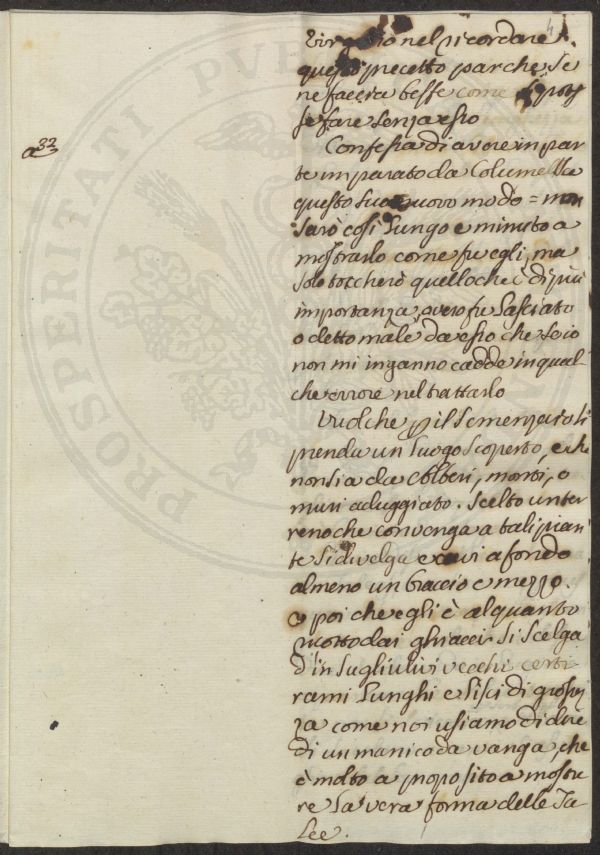 4
Virgilio nel ricordare
questo precetto par che se
ne faccia beffe come si potes
se fare senza esso
a 32
Confessa di avere in par
te imparato da Columella
questo suo nuovo modo = non
sarò così lungo e minuto a
mostrarlo come fu egli, ma
solo toccherò quello che è di più
importanza, overo fu lasciato
o detto male da esso che se io
non mi inganno cadde in qual
che errore nel trattarlo
Vuol che p il semenzaro si
prenda un luogo scoperto, e che
non sia da Alberi, monti, o
muri aduggiato. Scelto un ter
reno che convenga a tali pian
te si divelga e cavi a fondo
almeno un braccio e mezzo.
E poi che egli è alquanto
cotto dai ghiacci si scelga
d'in sugli ulivi vecchi certi
rami lunghi e lisci di grossez
za come noi usiamo di dire
di un manico da vanga, che
è molto a proposito a mostra
re la vera forma delle Ta
lee.
PROSPERITATI PVB